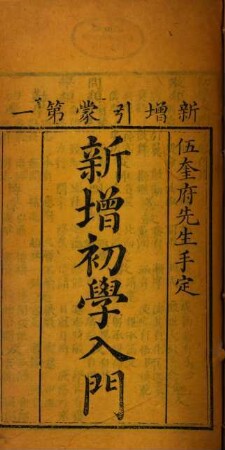 新增引蒙第一
伍奎府先生手定
新增初學入門